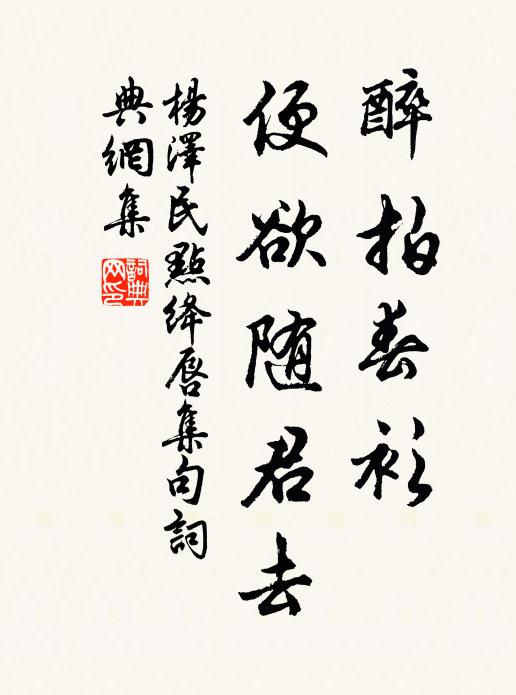 醉拍春衫
便欲随君去
楊澤民點绛唇集句詞
典網集
詞典网印